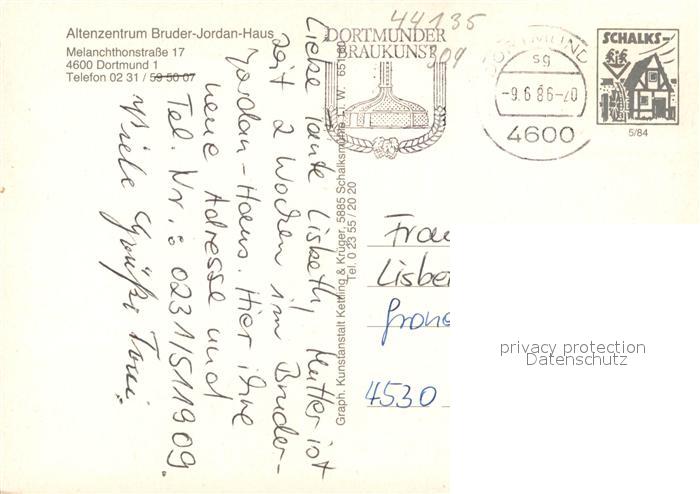 Altenzentrum Bruder-Jordan-Haus
Melanchthonstraße 17
4600 Dortmund 1
Telefon 02 31 / 59 50 07
44135
309
DORTMUNDER
BRAUKUNST
DORTMUND
sg
-9.6.86-20
4600
SCHALKS-
5/84
Liebe Tante Lisbeth, Mutter ist
seit 2 Wochen im Bruder-
Jordan-Haus. Hier ihre
neue Adresse und
Tel. Nr.: 0231/511909.
Viele Grüße Toni.
Graph. Kunstanstalt Kettling & Krüger, 5885 Schalksmühle i. W.
Tel. 0 23 55 / 20 20
Frau
Lisbe
Grone
4530
privacy protection
Datenschutz